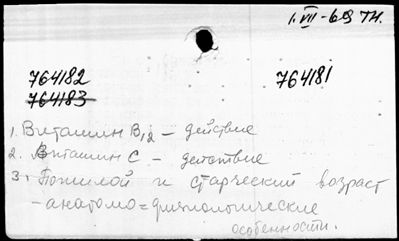 1.VII-69 тн.
764182 764181
764183
1. Витамин B12 – действие
2. Витамин C – действие
3. Пожилой и старческий возраст
– анатомо=физиологические
особенности.